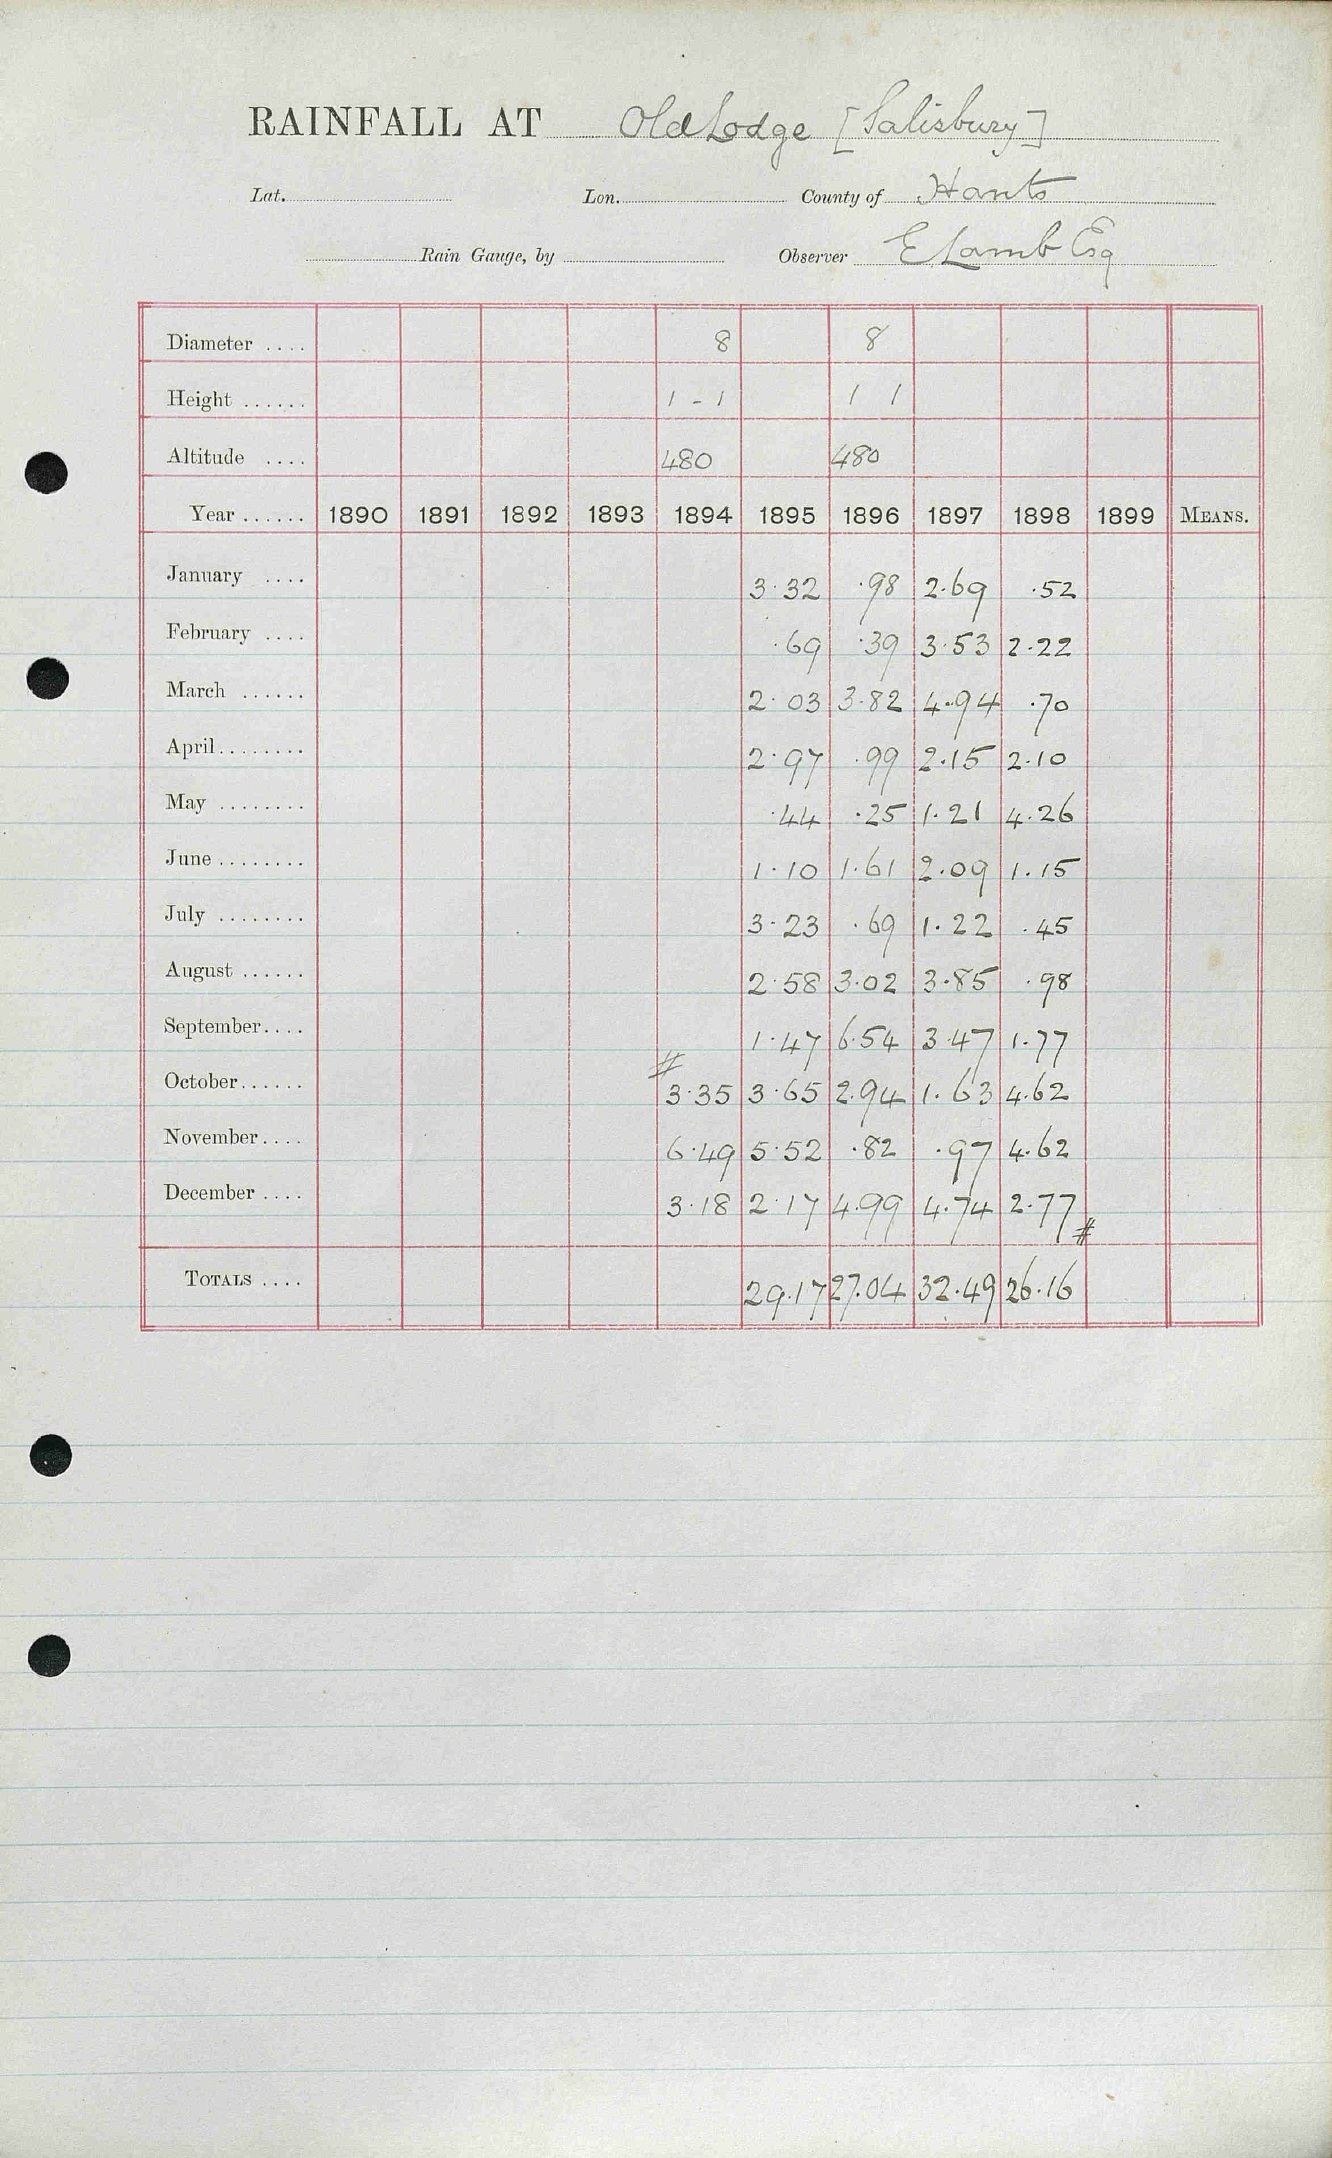 RAINFALL AT Old Lodge [Salisbury]
Lat. Lon. County of Hants
Rain Gauge, by Observer E Lamb Esq
Diameter .... 8 8
Height ...... 1 - 1 1 1
Altitude .... 480 480
Year ...... 1890 1891 1892 1893 1894 1895 1896 1897 1898 1899 MEANS.
January .... 3.32 .98 2.69 .52
February .... .69 .39 3.53 2.22
March ...... 2.03 3.82 4.94 .70
April ........ 2.97 .99 2.15 2.10
May ........ .44 .25 1.21 4.26
June ........ 1.10 1.61 2.09 1.15
July ........ 3.23 .69 1.22 .45
August ...... 2.58 3.02 3.85 .98
September .... 1.47 6.54 3.47 1.77
October ...... # 3.35 3.65 2.94 1.63 4.62
November .... 6.49 5.52 .82 .97 4.62
December .... 3.18 2.17 4.99 4.74 2.77 #
TOTALS .... 29.17 27.04 32.49 26.16